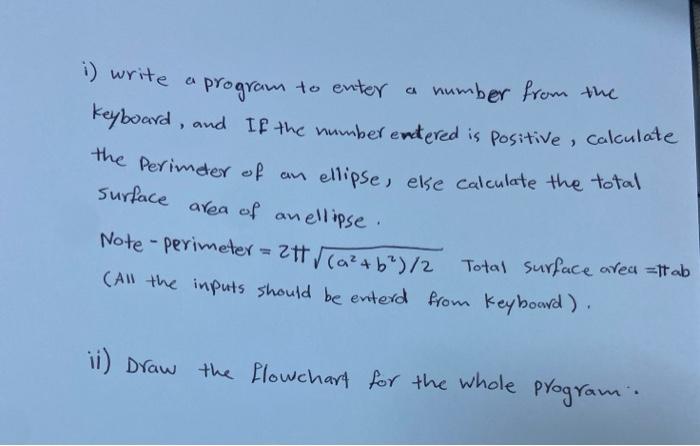 i) write a program to enter a number from the
keyboard, and If the number entered is Positive, calculate
the Perimeter of an ellipse, else calculate the total
surface area of an ellipse.
Note - perimeter = 2π√(a²+b²)/2 Total surface area = πab
(All the inputs should be enterd from keyboard).
ii) Draw the flowchart for the whole program.